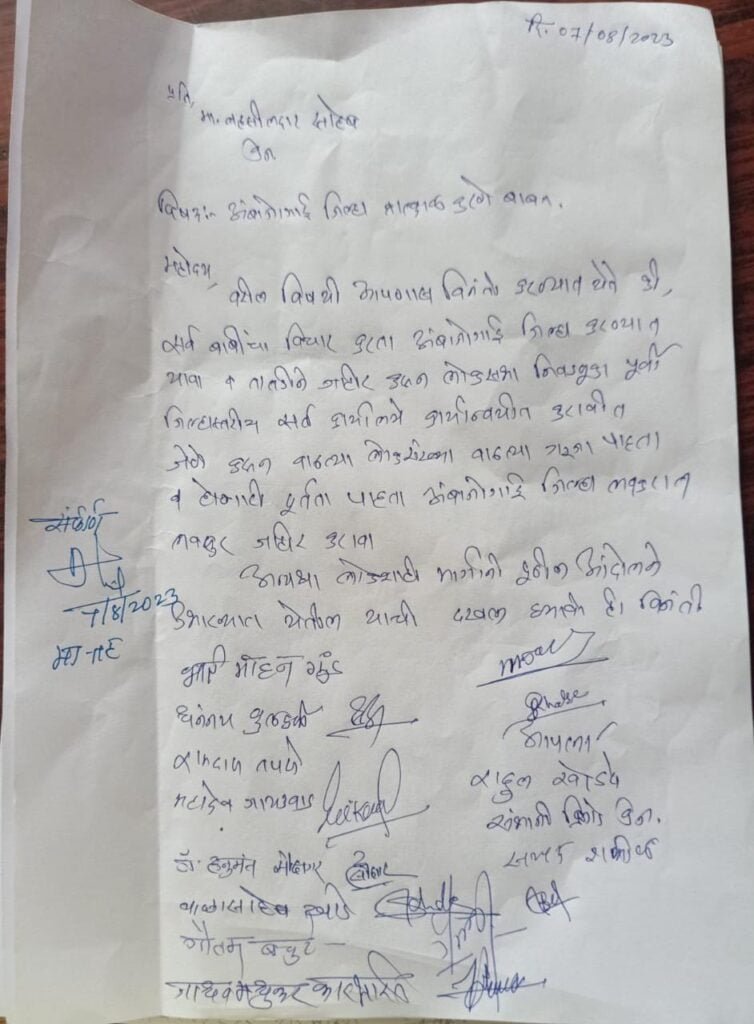 दि. 07/08/2023
प्रति,
मा. तहसीलदार साहेब
केज
विषय:- अंबाजोगाई जिल्हा तात्काळ करणे बाबत.
महोदय,
वरील विषयी आपणास विनंती करण्यात येते की,
सर्व बाबींचा विचार करता अंबाजोगाई जिल्हा करण्यात
यावा व तातडीने जाहिर करून लोकसभा निवडणूका पूर्वी
जिल्हास्तरीय सर्व कार्यालये कार्यान्वयीत करावीत
जेणे करून वाढत्या लोकसंख्या वाढत्या गरजा पाहता
व होणारी पूर्तता पाहता अंबाजोगाई जिल्हा लवकरात
लवकर जाहिर करावा
अन्यथा लोकशाही मार्गाने पुढील आंदोलने
उभारण्यात येतील याची दखल घ्यावी ही विनंती
7/8/2023
भाई मोहन गुंड
धनंजय कुलकर्णी
आपला
रामदास तपसे
राहुल खोडसे
महादेव गायकवाड
डॉ. हनुमंत
बाळासाहेब
गौतम बचुटे